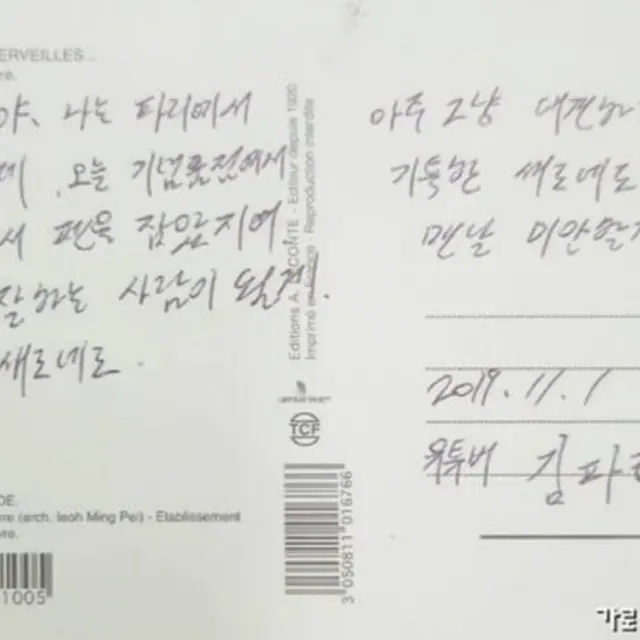 ERVEILLES...
re.
야. 나는 파리에서
데 오늘 기념품점에서
서 펜을 잡았지에
잘하는 사람이 될게.
새로네로.
아주 그냥 대견하
기특한 새로네로
맨날 미안할지
2019.11.1
유튜버 김파
Editions A. LECONTE - Editeur depuis 1920
Imprimé en - Reproduction interdite
TCF
3 050811 016766
DE
re (arch. Ieoh Ming Pei) - Etablissement
vre.
1005
가로